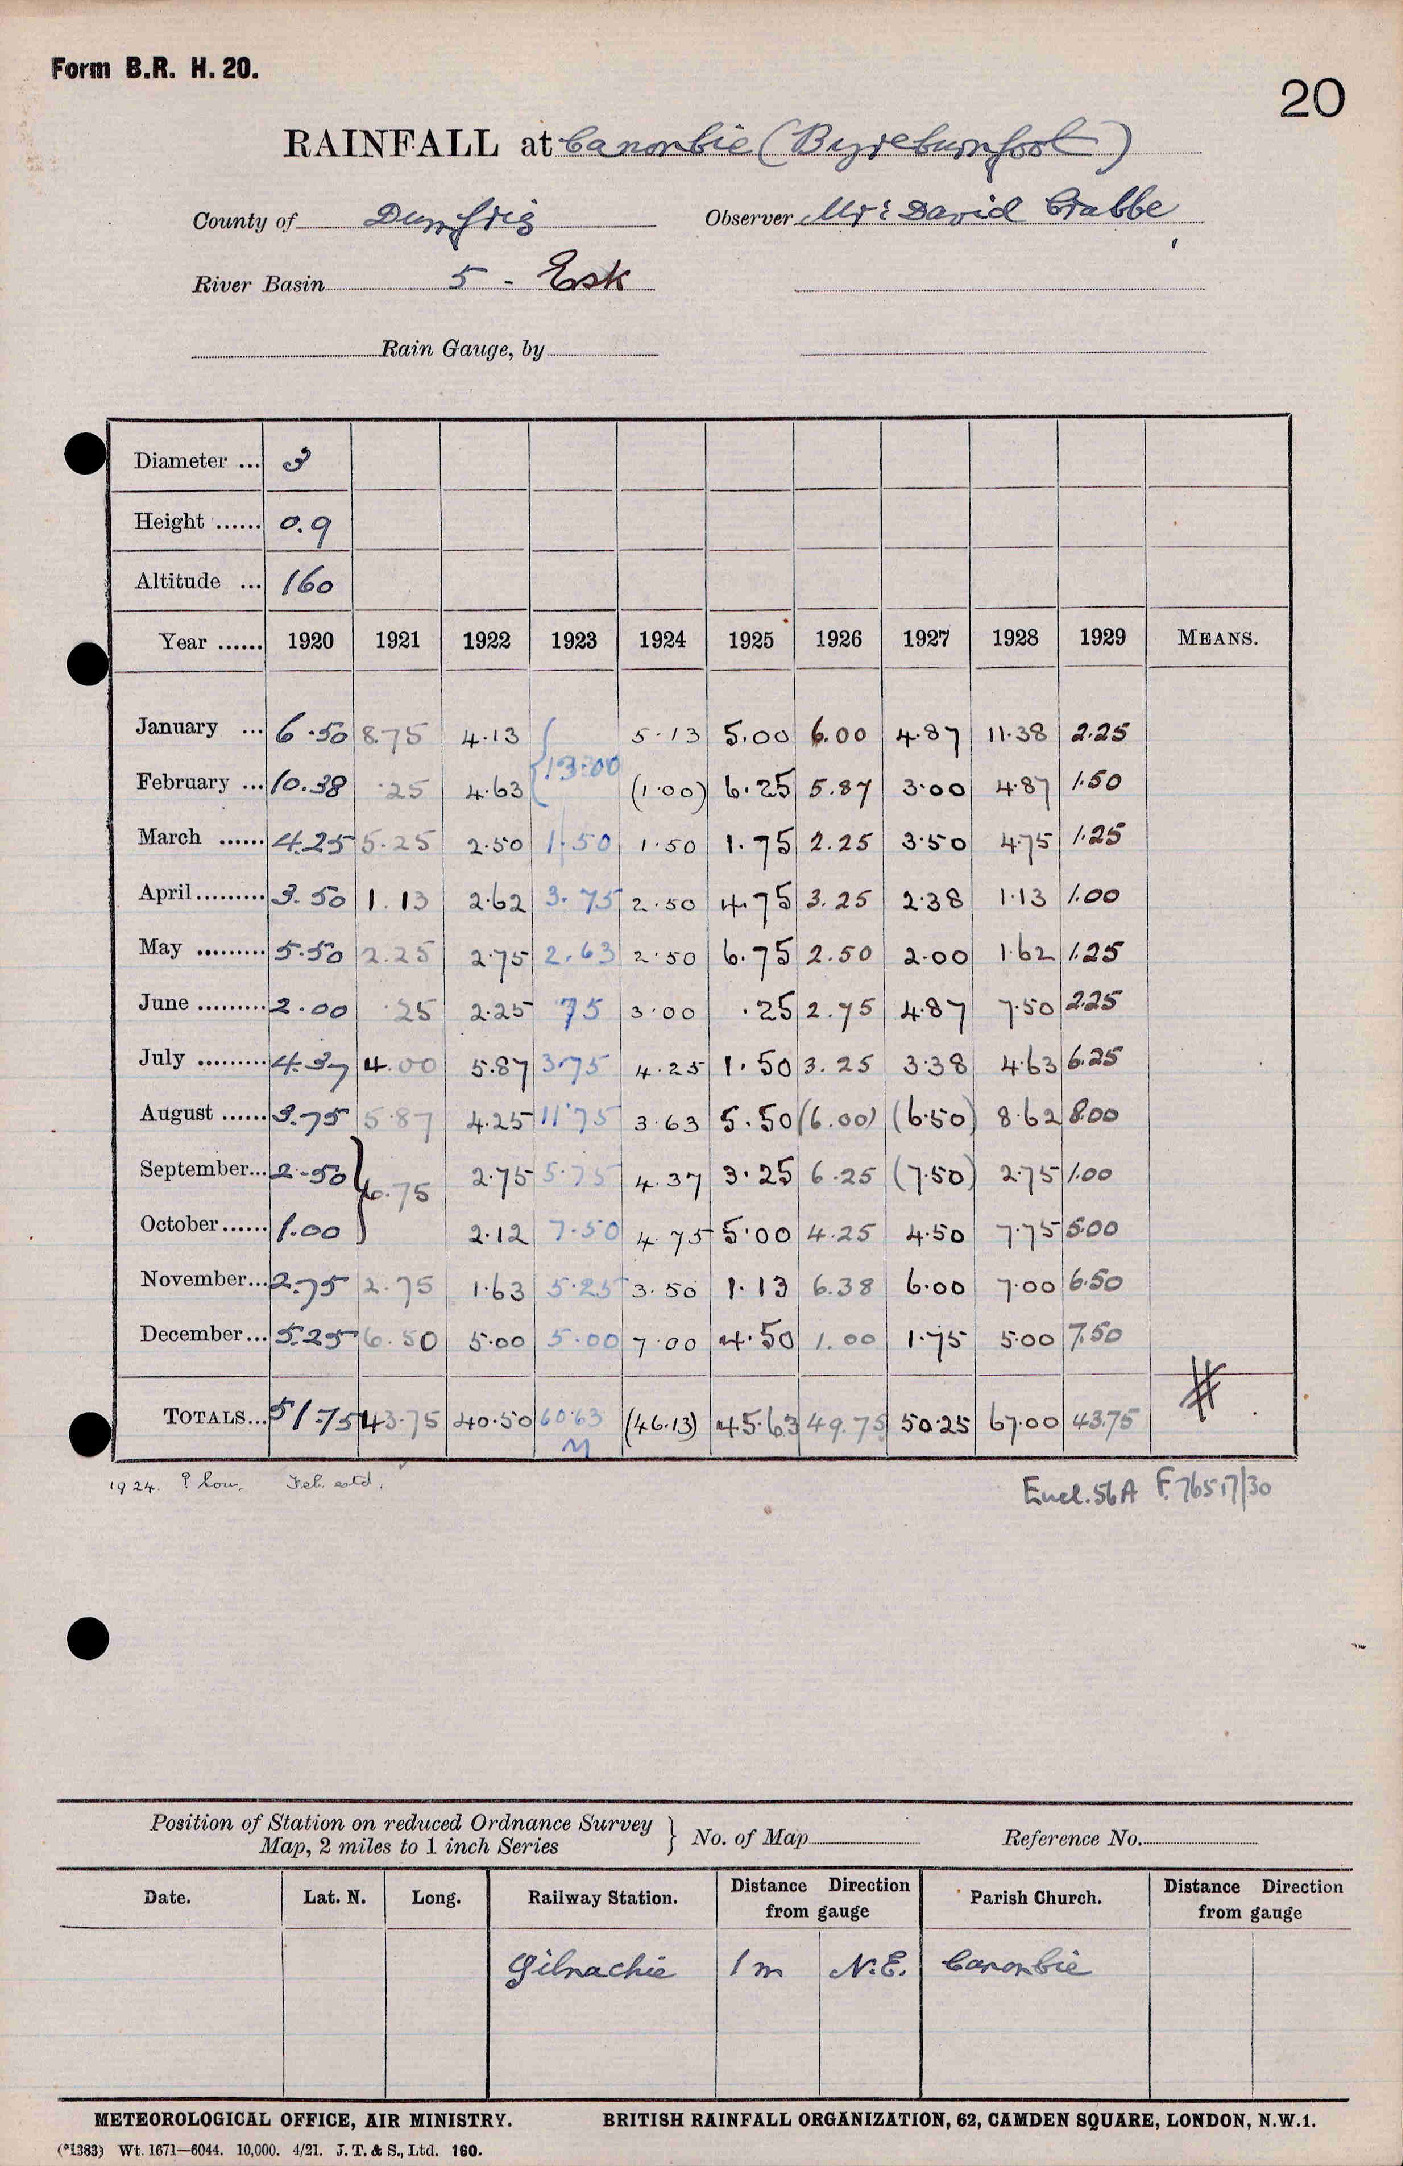 Form B.R. H. 20.
20
RAINFALL at Canonbie (Byreburnfoot)
County of Dumfries Observer Mr: David Crabbe
River Basin 5 - Esk
Rain Gauge, by
Diameter ... 3
Height ...... 0.9
Altitude ... 160
Year ...... 1920 1921 1922 1923 1924 1925 1926 1927 1928 1929 MEANS.
January ... 6.50 8.75 4.13 { 5.13 5.00 6.00 4.87 11.38 2.25
13.00
February ... 10.38 .25 4.63 (1.00) 6.25 5.87 3.00 4.87 1.50
March ...... 4.25 5.25 2.50 1.50 1.50 1.75 2.25 3.50 4.75 1.25
April ......... 3.50 1.13 2.62 3.75 2.50 4.75 3.25 2.38 1.13 1.00
May ......... 5.50 2.25 2.75 2.63 2.50 6.75 2.50 2.00 1.62 1.25
June ......... 2.00 .25 2.25 .75 3.00 .25 2.75 4.87 7.50 2.25
July ......... 4.37 4.00 5.87 3.75 4.25 1.50 3.25 3.38 4.63 6.25
August ...... 3.75 5.87 4.25 11.75 3.63 5.50 (6.00) (6.50) 8.62 8.00
September... 2.50 } 6.75 2.75 5.75 4.37 3.25 6.25 (7.50) 2.75 1.00
October ...... 1.00 2.12 7.50 4.75 5.00 4.25 4.50 7.75 5.00
November... 2.75 2.75 1.63 5.25 3.50 1.13 6.38 6.00 7.00 6.50
December... 5.25 6.50 5.00 5.00 7.00 4.50 1.00 1.75 5.00 7.50
TOTALS... 51.75 43.75 40.50 60.63 (46.13) 45.63 49.75 50.25 67.00 43.75 #
1924. ? low. Feb. estd.
Encl. 56A F.76517/30
Position of Station on reduced Ordnance Survey
Map, 2 miles to 1 inch Series } No. of Map Reference No.
Date. Lat. N. Long. Railway Station. Distance Direction from gauge Parish Church. Distance Direction from gauge
Gilnochie 1 m N.E. Canonbie
METEOROLOGICAL OFFICE, AIR MINISTRY. BRITISH RAINFALL ORGANIZATION, 62, CAMDEN SQUARE, LONDON, N.W.1.
(*1383) Wt. 1671—6044. 10,000. 4/21. J. T. & S., Ltd. 160.